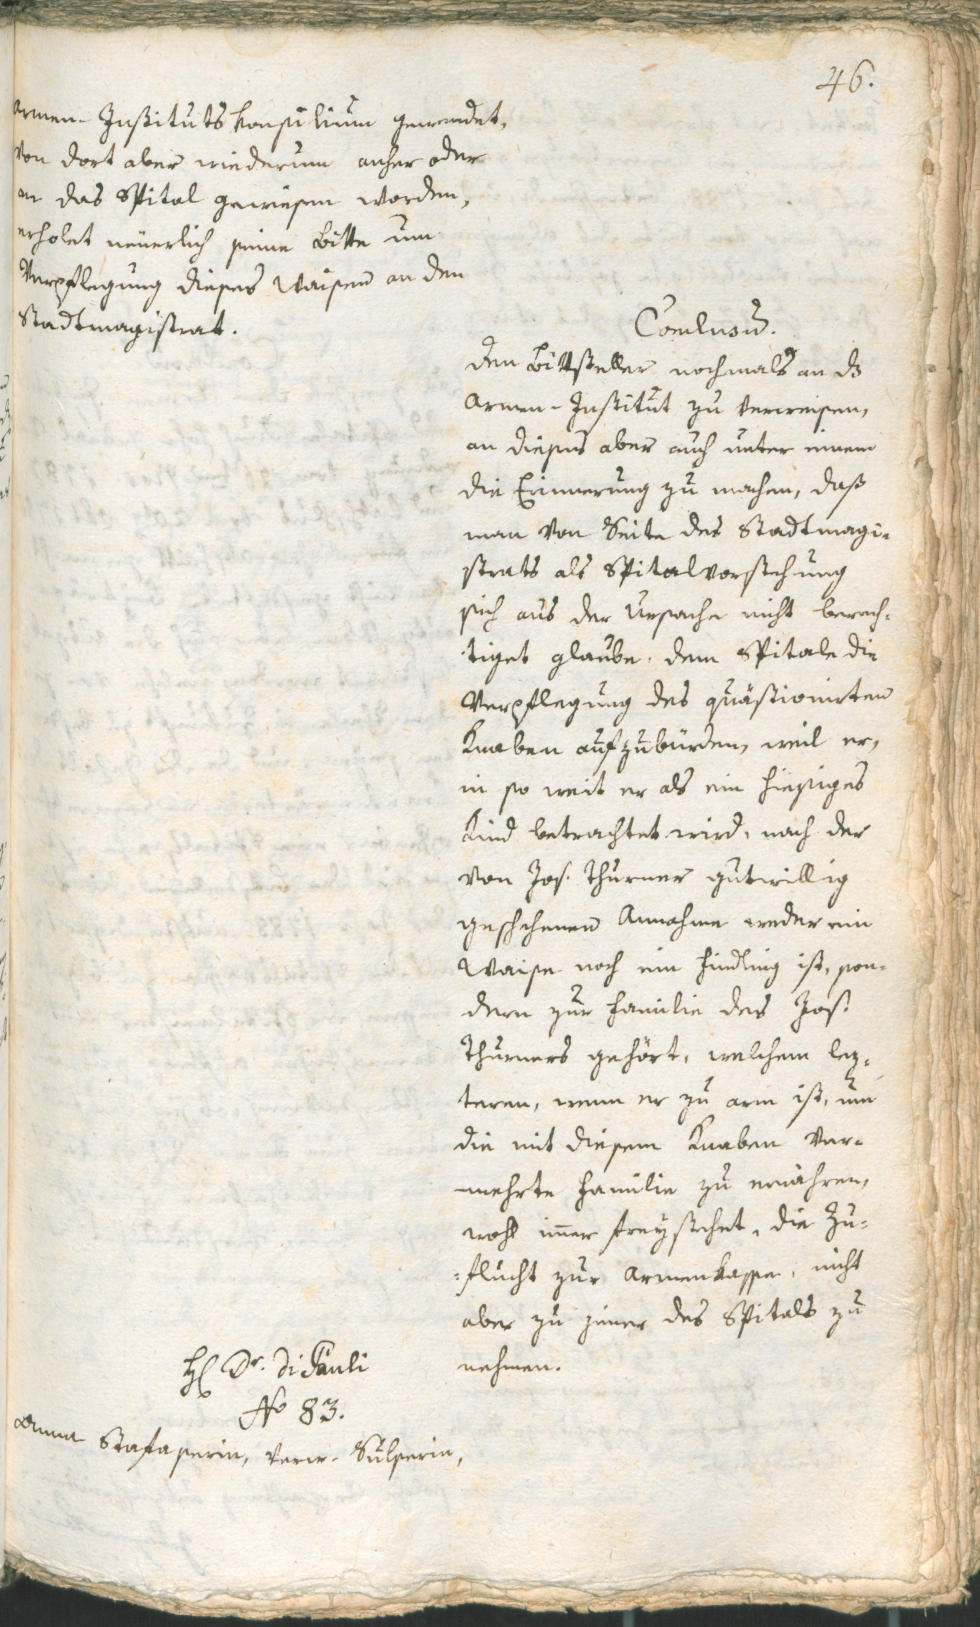 46.
Armen-Instituts Konsilium gewendet,
von dort aber wiederum anher oder
an das Spital gewiesen worden,
erholet neuerlich seine Bitte um
Verpflegung dieses Waisen an den
Stadtmagistrat.
Conclusu͞.
Den Bittsteller nochmals an ds
Armen-Institut zu verweisen,
an dieses aber auch unter einem
die Erinnerung zu machen, daß
man von Seite des Stadtmagi-
strats als Spitalvorstehung
sich aus der Ursache nicht berech-
tiget glaube, dem Spitale die
Verpflegung des quästionirten
Knaben aufzubürden, weil er,
in so weit er als ein hiesiges
Kind betrachtet wird, nach der
von Jos. Thurner gutwillig
geschehenen Annahme weder ein
Waise noch ein Findling ist, son-
dern zur Familie des Jos.
Thurners gehört, welchem lez-
teren, wenn er zu arm ist, um
die mit diesem Knaben ver-
mehrte Familie zu ernähren,
wohl im̄er freystehet, die Zu-
-flucht zur Armenkasse, nicht
aber zu jener des Spitals zu
nehmen.
H Dr. di Pauli
No 83.
Anna Verw.